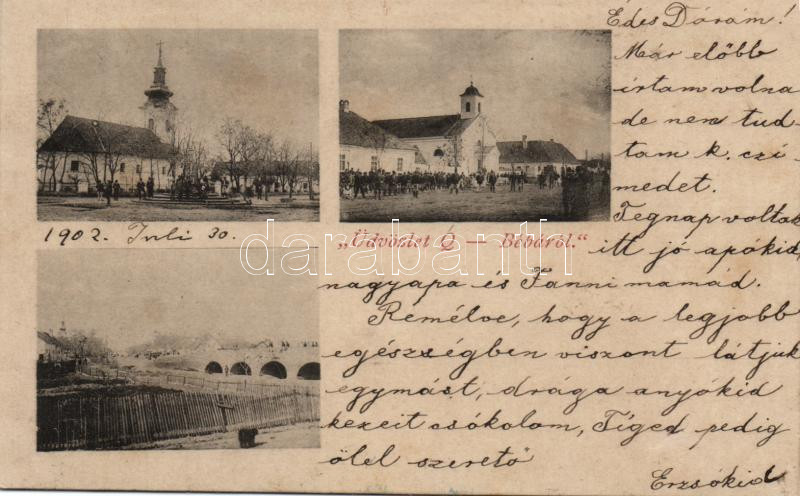 Édes Dórám!
Már előbb
irtam volna
de nem tud-
tam k. czi-
medet.
Tegnap voltak
itt jó apókid,
nagyapa és Fanni mamád.
Remélve, hogy a legjobb
egészségben viszont látjuk
egymást, drága anyókid
kezeit csókolom, Tiged pedig
ölel szerető
Erzsókid
1902. Juli 30.
„Üdvözlet Ó — Bébáról."
darabanth